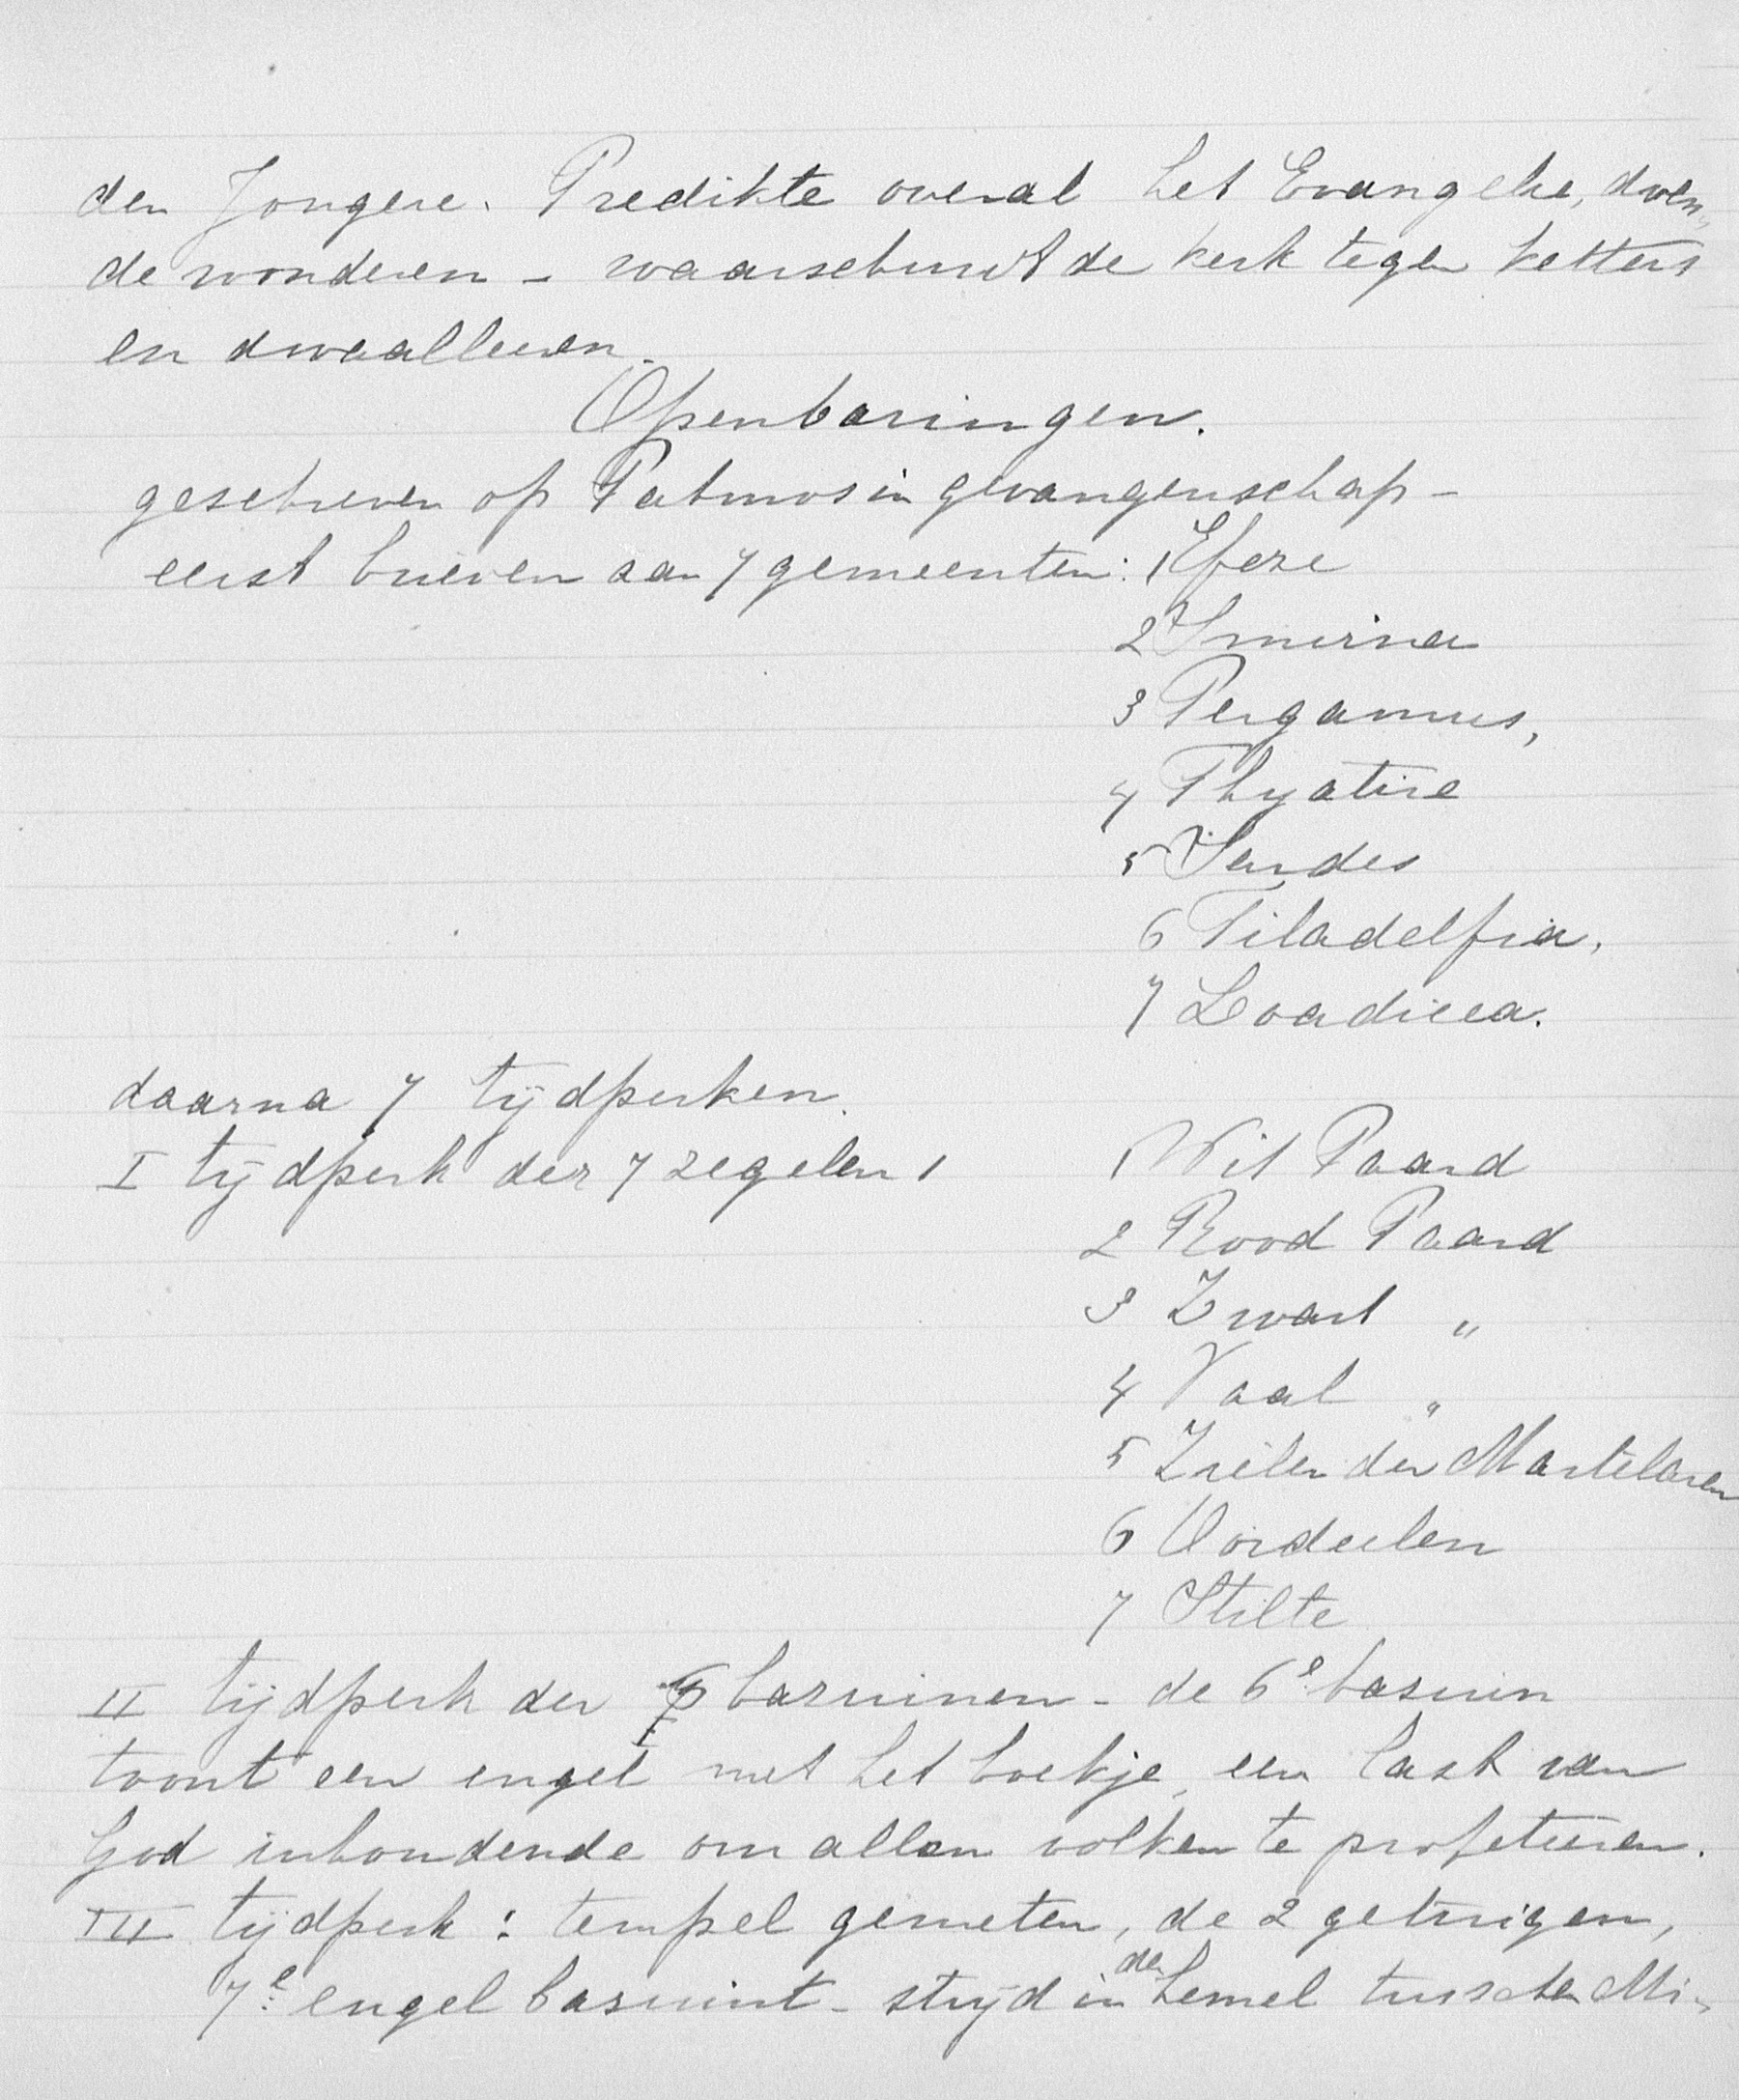 den Jongere. Predikte overal het Evangelie, doen,,
de wonderen – waarschuwt de kerk tegen ketters
en dwaalleeren.
Openbaringen.
geschreven op Patmos in gevangenschap –
eerst brieven aan 7 gemeenten: 1 Efeze
2 Smirna
3 Pergamus,
4 Thyatire
5 Sardes
6 Filadelfia,
7 Loadicea.
daarna 7 tijdperken.
I tijdperk der 7 zegelen 1
1 Wit Paard
2 Rood Paard
3 Zwart "
4 Vaal "
5 Zielen der Martelaren
6 Oordeelen
7 Stilte
II tijdperk der 6 bazuinen – de 6e basuin
toont een engel met het boekje, een last van
God inhoudende om allen volken te profeteeren.
III tijdperk: tempel gemeten, de 2 getuigen,
7e engel basuint – strijd in den hemel tusschen Mi-